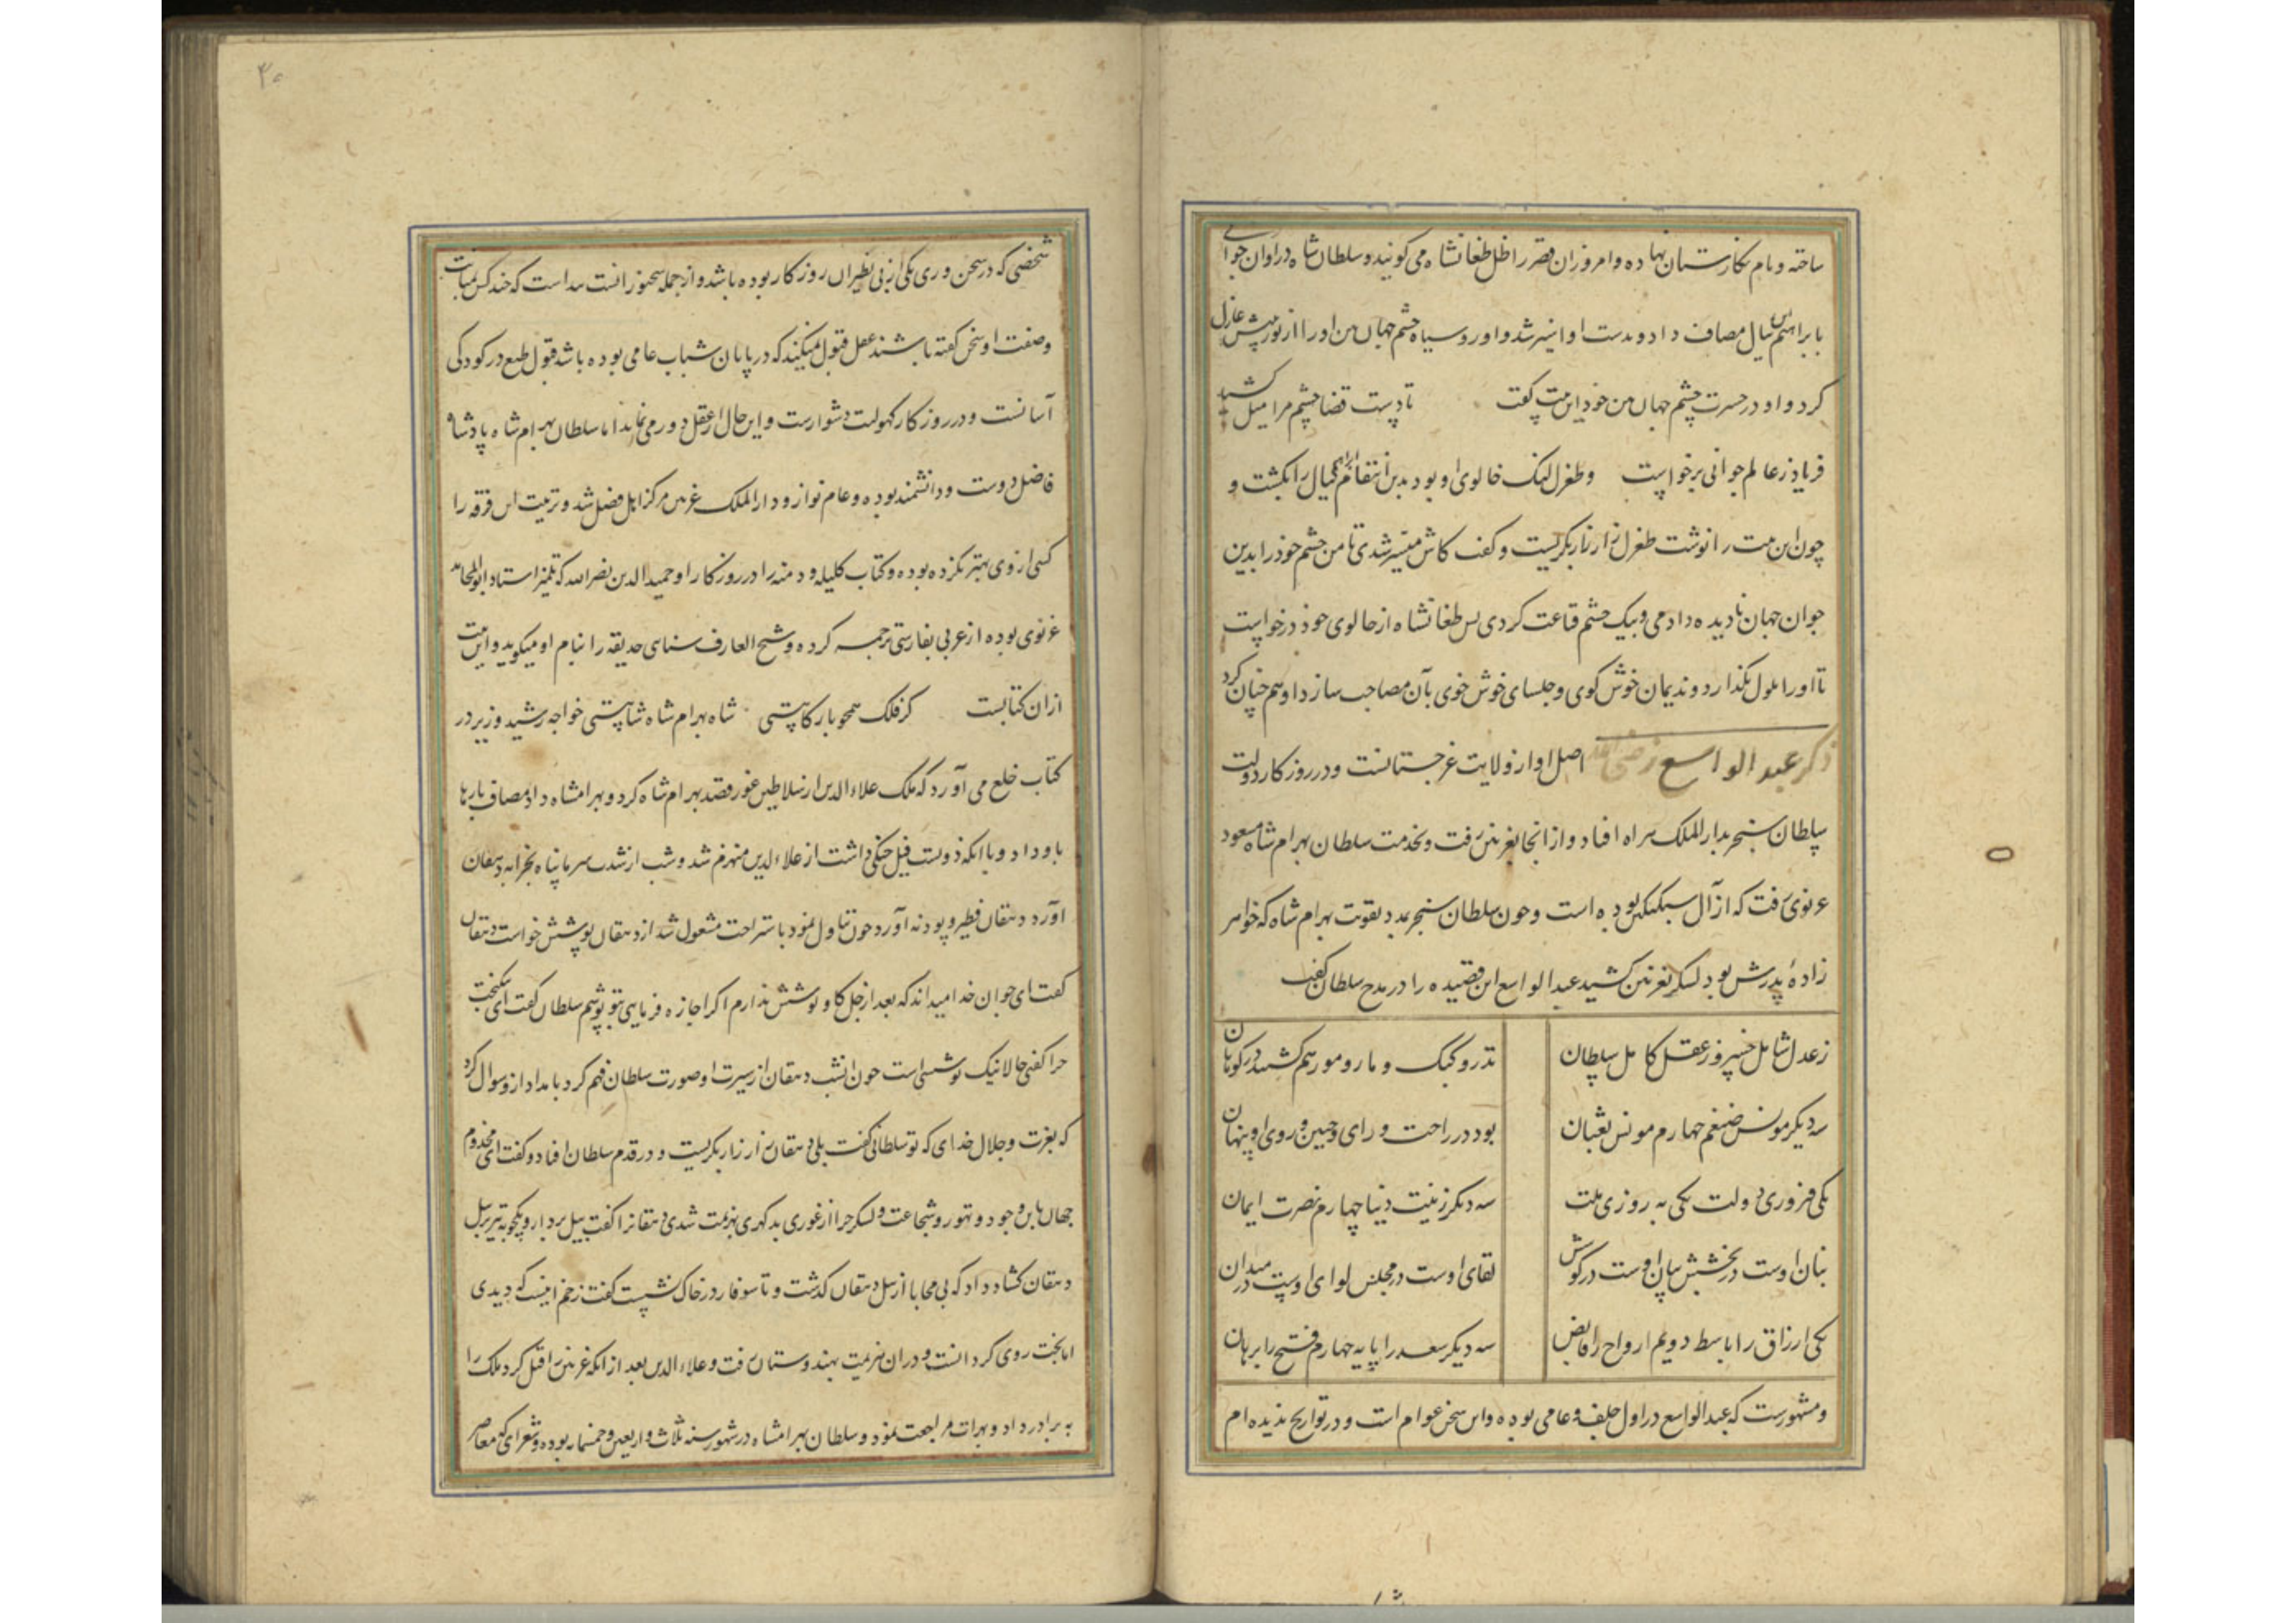 ساخته و نام نکارستان نهاده و امروز ان قصر را ظل طغانشاه می کویند و سلطان شاه در اوان جوانی
با براهیم نیال مصاف داد و بدست او اسیر شد و او رو سیاه چشم جهان بین او را از نور بینش عازل
کرد و او در حسرت چشم جهان بین خود این بیت گفت تا دست قضا چشم مرا میل کشید
فریاد ز عالم جوانی برخواست و طغرل لبک خالوی او بود بدین انتقام ابراهیم نیال را بکشت و
چون این بیت را نوشت طغرل زار زار بگریست و گفت کاش میسر شدی تا من چشم خود را بدین
جوان جهان نادیده دادمی و بیک چشم قناعت کردی پس طغانشاه از خالوی خود درخواست
تا او را ملول نکذارد و ندیمان خوش کوی و جلسای خوش خوی بآن مصاحب سازد او هم چنان کرد
ذکر عبد الواسع اصل او از ولایت غرجستانست و در روزکار دولت
سلطان سنجر بدار الملک هراه افتاد و از انجا بغزنین رفت و بخدمت سلطان بهرام شاه مسعود
غزنوی رفت که از آل سبکتکین بوده است و چون سلطان سنجر بمدد تقویت بهرام شاه که خواهر
زادهٔ پدرش بود لسکر بغزنین کشید عبد الواسع این قصیده را در مدح سلطان گفت
ز عدل شامل خسرو ز عقل کامل سلطان تذرو کبک و مار و مور هم کشتند در کوهان
سه دیکر مونس ضیغم چهارم مونس ثعبان بود در راحت و رای و جبین و روی او پنهان
یکی فیروزی دولت یکی به روزی ملت سه دیکر زینت دنیا چهارم نصرت ایمان
بنان اوست در بخشش سان اوست در کوشش لقای اوست در مجلس لوای اوست در میدان
یکی ارزاق را باسط دویم ارواح را قابض سه دیکر سعد را پایه چهارم فتح را برهان
و مشهورست که عبد الواسع در اول جلف و عامی بوده و این سخن عوام است و در تواریخ ندیده ام
۳۰
شخصی که در سخن وری یکی از بی نظیران روزکار بوده باشد و از جمله سخنورانست بداست که چند کس بمتابت
وصفت او سخن کفته باشند عقل قبول میکند که در پایان شباب عامی بوده باشد قبول طبع در کودکی
آسانست و در روزکار کهولت دشوارست و این حال از عقل دور می نماید اما سلطان بهرام شاه پادشاه
فاضل دوست و دانشمند بوده و عام نواز و دار الملک غزنین مرکز اهل فضل شد و تربیت این فرقه را
کسی از وی بهتر نکرده بوده و کتاب کلیله و دمنه را در روزکار او حمید الدین نصر الله که تلمیذ استاد ابو المحامد
غزنوی بوده از عربی بفارسی ترجمه کرده و شیخ العارف سنای حدیقه را بنام او میکوید و این بیت
از ان کتابست کر فلک همچو بارکاهستی شاه بهرام شاه شاهستی خواجه رشید وزیر در
کتاب خلع می آورد که ملک علاء الدین از سلاطین غور قصد بهرام شاه کرد و بهرامشاه داد مصاف بارها
با و داد و با انکه دویست فیل جنکی داشت از علاء الدین منهزم شد و شب از شدت سرما پناه بخرابه دهقان
آورد دهقان فطیر و پودنه آورد چون تناول نمود باستراحت مشعول شد از دهقان پوشش خواست دهقان
کفت ای جوان خدا میداند که بعد از جل کاو پوشش ندارم اکر اجازه فرمایی بتو پوشم سلطان کفت ای نیکبخت
چرا کفتی حالا نیک پوششی است چون انشب دهقان از سیرت او صورت سلطان فهم کرد بامداد ازو سوال کرد
که بعزت و جلال خدای که تو سلطانی کفت بلی دهقان زار زار بکریست و در قدم سلطان افتاد و کفت ای مخدوم
جهان باین وجود و تهور و شجاعت و لسکر چرا از غوری بدکهری بهزیمت شدی دهقانرا کفت بیل بردار و یکچوبه تیر بر بیل
دهقان کشاد داد که بی محابا از بیل دهقان کذشت و تا سوفار در خاک نشست کفت زخم اینست که دیدی
اما بخت روی کردانست و در ان هزیمت بهندوستان رفت و علاء الدین بعد از انکه غزنین را قتل کرد ملک را
به برادر داد و بهرات مراجعت نمود و سلطان بهرامشاه در شهور سنه ثلاث و اربعین و خمسمایه بوده و شعرای که معاصر